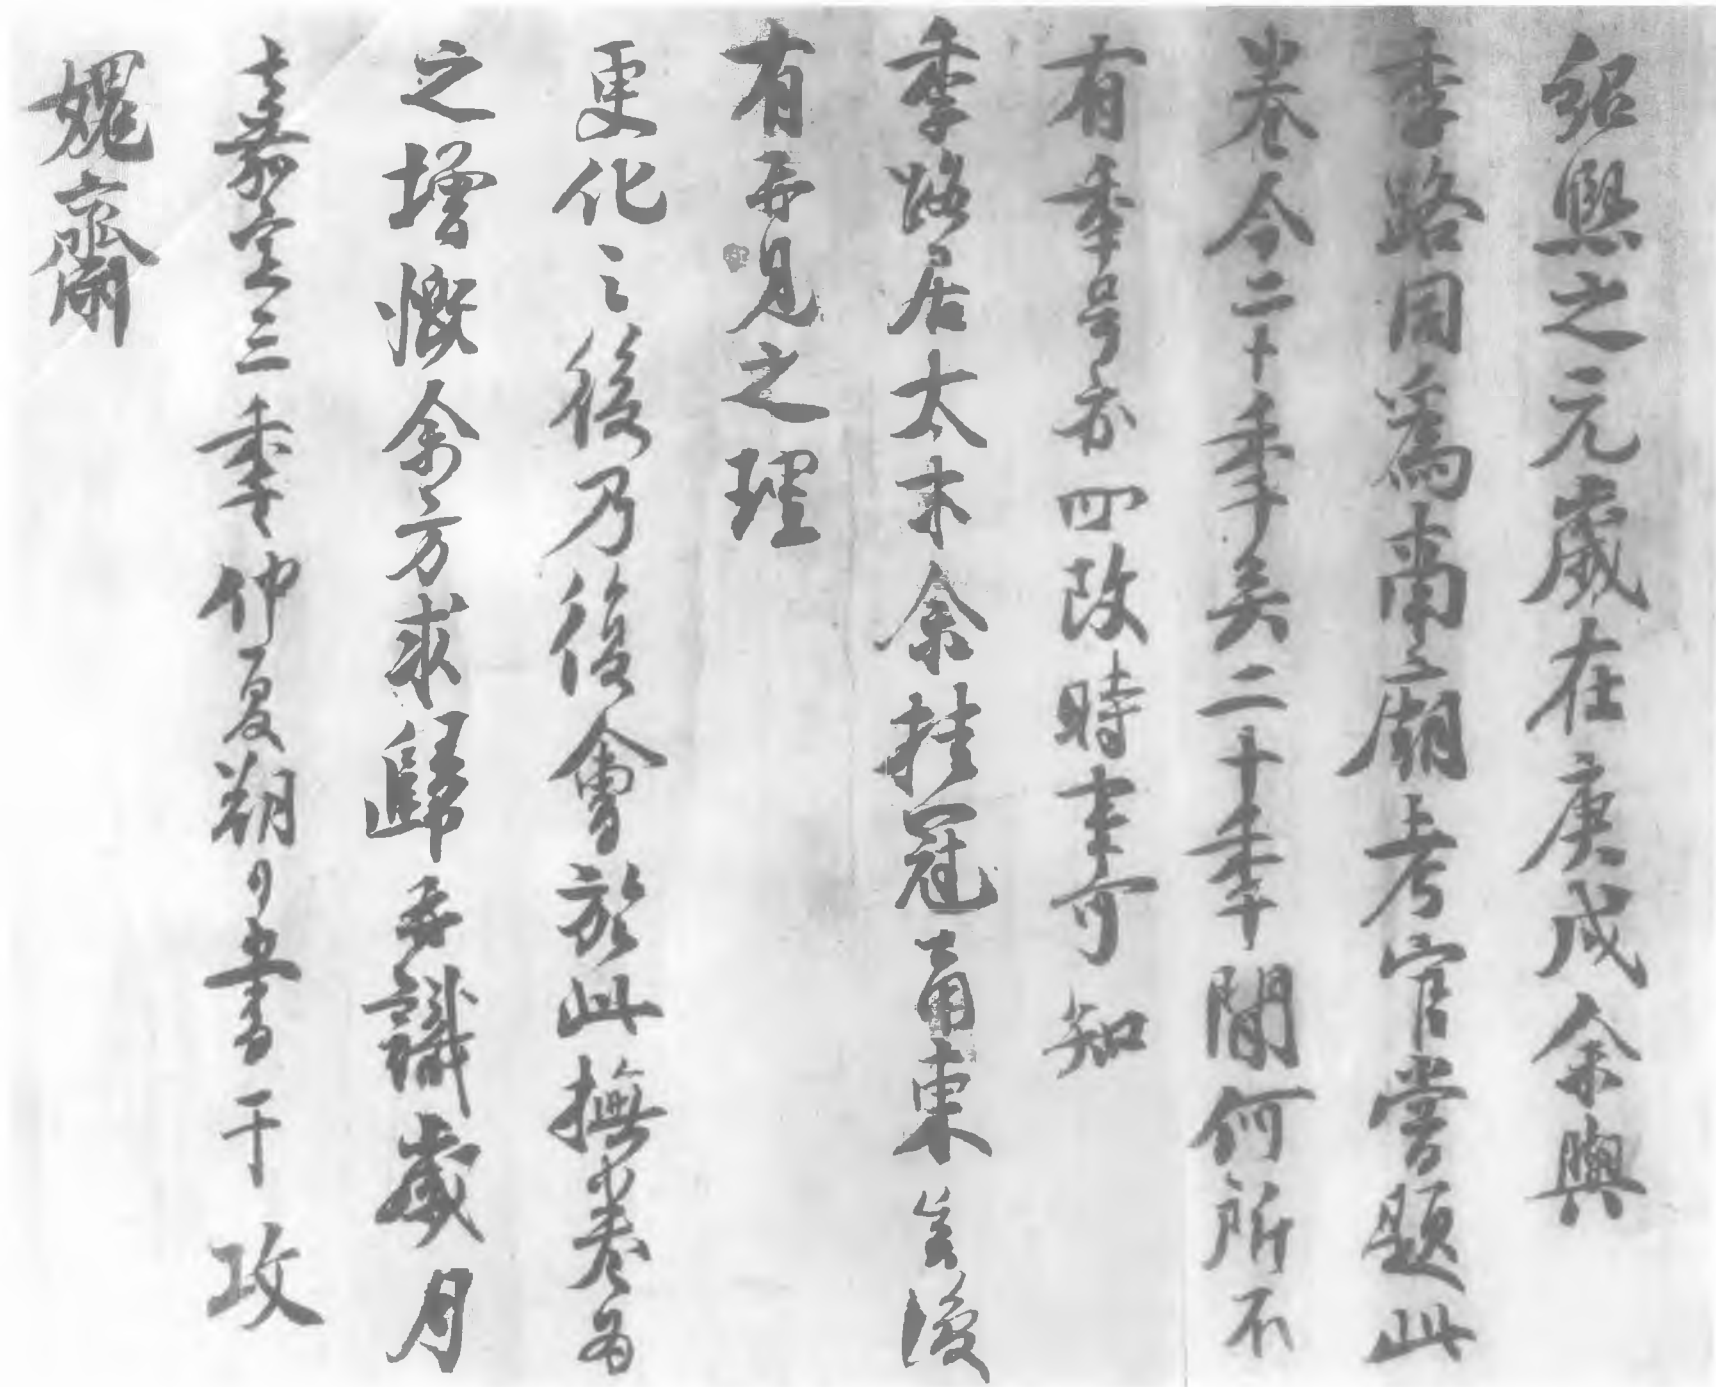 紹熙之元歲在庚戌余與
季路同為南廟考官嘗題此
卷今二十季矣二十季間何所不
有季号亦四改時事可知
季路居太末余挂冠甬東無復
有再見之理
更化之後乃復會於此撫卷為
之增慨余方求歸再識歲月
嘉定三季仲夏朔日書于攻
媿齋